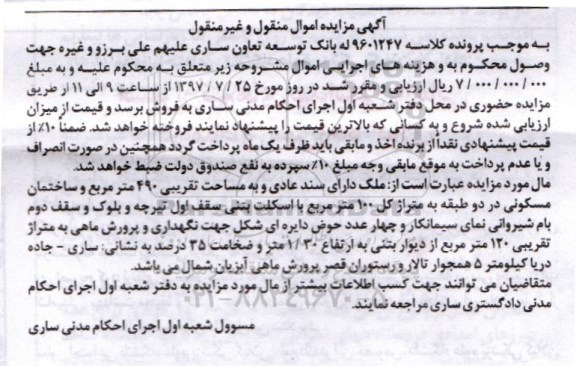 آگهی مزایده اموال منقول و غیر منقول
به موجب پرونده کلاسه ۹۶۰۱۲۴۷ له بانک توسعه تعاون ساری علیهم علی برزو و غیره جهت
وصول محکوم به و هزینه های اجرایی اموال مشروحه زیر متعلق به محکوم علیه و به مبلغ
۷/۰۰۰/۰۰۰/۰۰۰ ریال ارزیابی و مقرر شد در روز مورخ ۱۳۹۷/۷/۲۵ از ساعت ۹ الی ۱۱ از طریق
مزایده حضوری در محل دفتر شعبه اول اجرای احکام مدنی ساری به فروش برسد و قیمت از میزان
ارزیابی شده شروع و به کسانی که بالاترین قیمت را پیشنهاد نمایند فروخته خواهد شد. ضمناً ۱۰٪ از
قیمت پیشنهادی نقداً از برنده اخذ و مابقی باید ظرف یک ماه پرداخت گردد همچنین در صورت انصراف
و یا عدم پرداخت به موقع مابقی وجه مبلغ ۱۰٪ سپرده به نفع صندوق دولت ضبط خواهد شد.
مال مورد مزایده عبارت است از: ملک دارای سند عادی و به مساحت تقریبی ۴۹۰ متر مربع و ساختمان
مسکونی در دو طبقه به متراژ کل ۱۰۰ متر مربع با اسکلت بتنی سقف اول تیرچه و بلوک و سقف دوم
بام شیروانی نمای سیمانکار و چهار عدد حوض دایره ای شکل جهت نگهداری و پرورش ماهی به متراژ
تقریبی ۱۲۰ متر مربع از دیوار بتنی به ارتفاع ۱/۳۰ متر و ضخامت ۳۵ درصد به نشانی: ساری - جاده
دریا کیلومتر ۵ همجوار تالار و رستوران قصر پرورش ماهی آبزیان شمال می باشد.
متقاضیان می توانند جهت کسب اطلاعات بیشتر از مال مورد مزایده به دفتر شعبه اول اجرای احکام
مدنی دادگستری ساری مراجعه نمایند.
مسوول شعبه اول اجرای احکام مدنی ساری